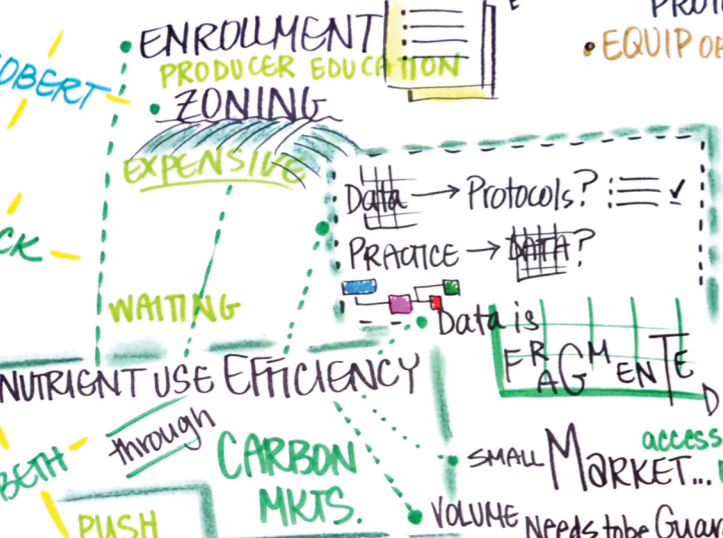 ENROLLMENT
PRODUCER EDUCATION
EQUIP
ZONING
EXPENSIVE
Data → Protocols? ✓
PRACTICE → DATA?
WAITING
Data is
FRAGMENTED
NUTRIENT USE EFFICIENCY
through
CARBON
MKTS.
SMALL MARKET...
access
VOLUME Needs to be
PUSH